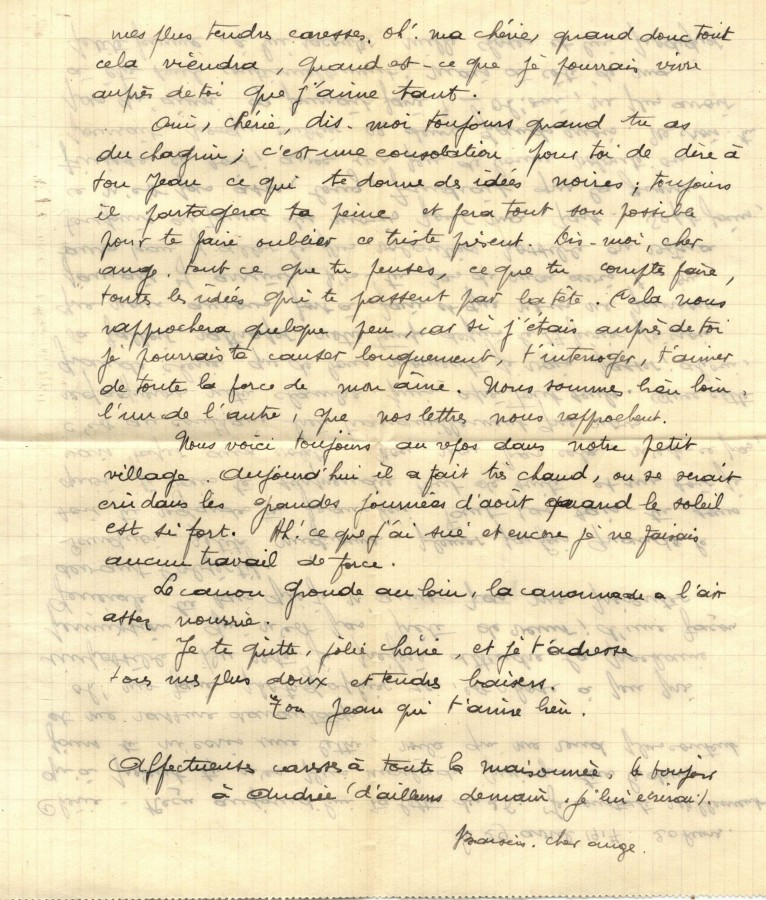 mes plus tendres caresses. Oh! ma chérie, quand donc tout
cela viendra, quand est-ce que je pourrais vivre
auprès de toi que j'aime tant.
Oui, chérie, dis-moi toujours quand tu as
du chagrin; c'est une consolation pour toi de dire à
ton Jean ce qui te donne des idées noires; toujours
il partagera ta peine et fera tout son possible
pour te faire oublier ce triste présent. Dis-moi, cher
ange, tout ce que tu penses, ce que tu comptes faire,
toutes les idées qui te passent par la tête. Cela nous
rapprochera quelque peu, car si j'étais auprès de toi
je pourrais te causer longuement, t'interroger, t'aimer
de toute la force de mon âme. Nous sommes bien loin
l'un de l'autre, que nos lettres nous rapprochent.
Nous voici toujours au repos dans notre petit
village. Aujourd'hui il a fait très chaud, on se serait
crû dans les grandes journées d'août quand le soleil
est si fort. Ah! ce que j'ai sué et encore je ne faisais
aucun travail de force.
Le canon gronde au loin, la canonnade a l'air
assez nourrie.
Je te quitte, jolie chérie, et je t'adresse
tous mes plus doux et tendres baisers.
Ton Jean qui t'aime bien.
Affectueuses caresses à toute la maisonnée, le bonjour
à Andrée (d'ailleurs demain, je lui écrirai).
Baisers. cher ange.